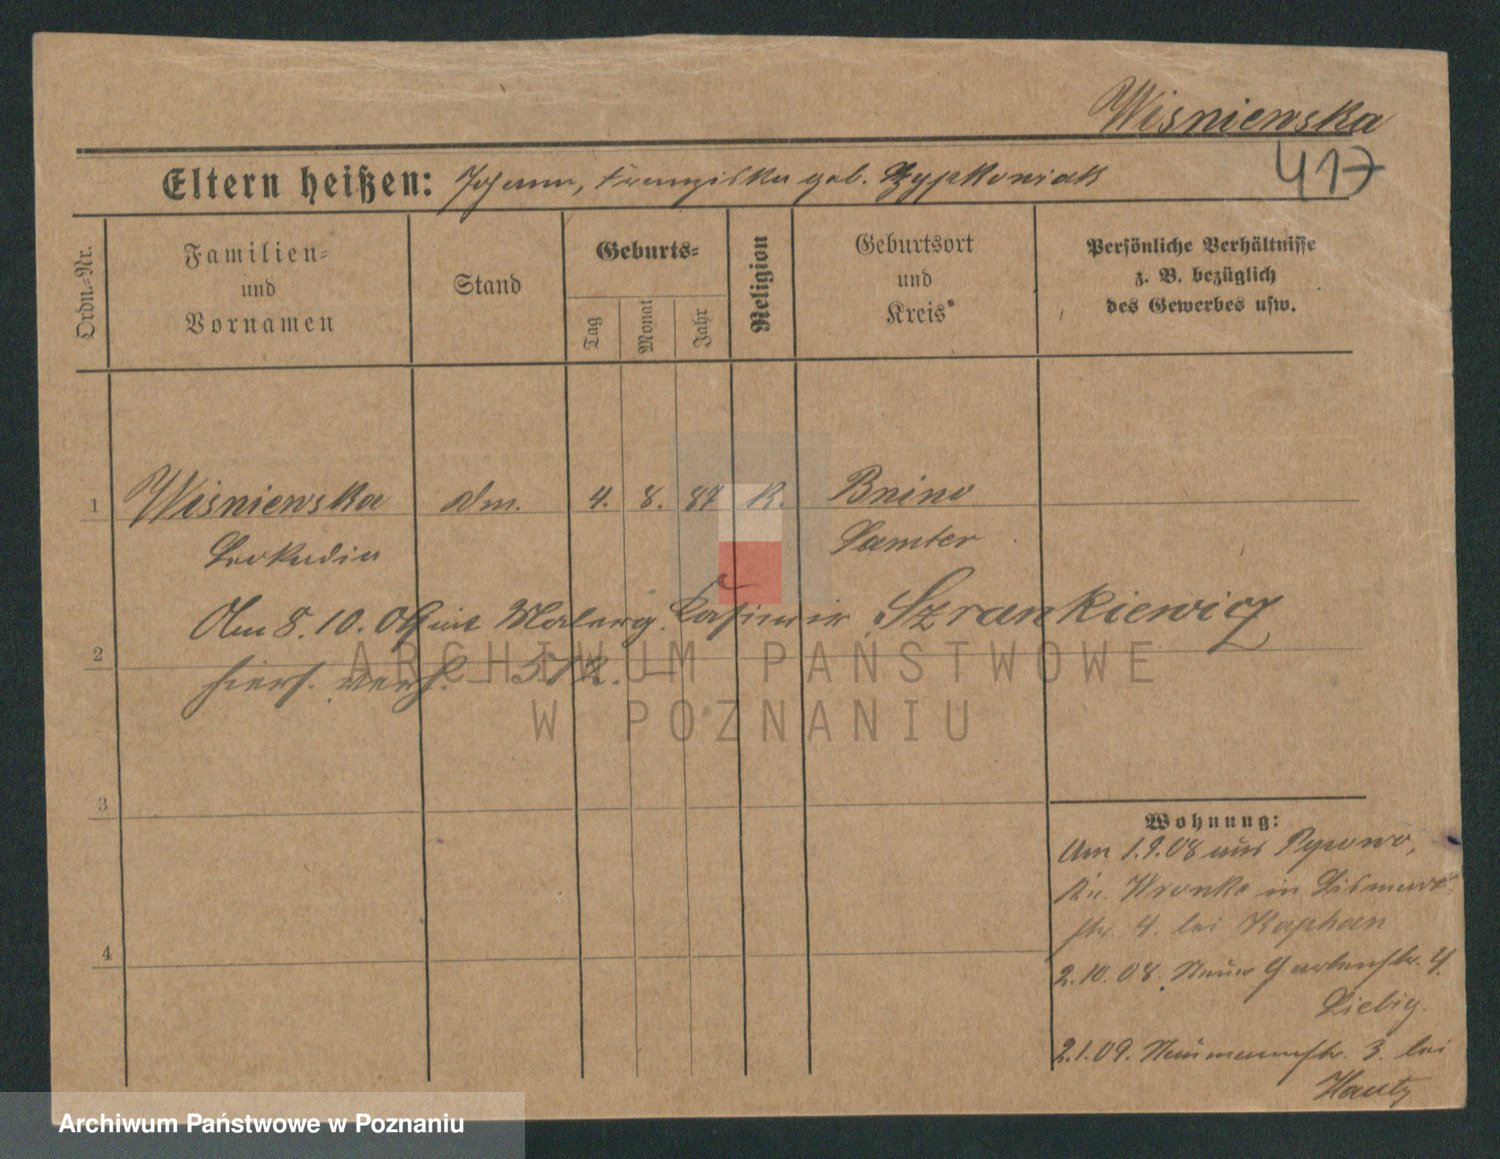 Wisniewska
417
Eltern heißen: Johann, Franziska geb. Szypkoniak
Ordn.=Nr.
Familien=
und
Vornamen
Stand
Geburts=
Tag
Monat
Jahr
Religion
Geburtsort
und
Kreis
Persönliche Verhältnisse
z. B. bezüglich
des Gewerbes usw.
1 Wisniewska 4. 8. 87 K. Bnino
Leokadia Samter
Am 8. 10. mit Kasimir Szrankiewicz
2
hiers. verh. 572.
3
4
Wohnung:
Am 1.9.08 aus
Kr. Wronke in Bismark
str. 4. bei Kaphan
2.10.08. Neue Gartenstr. 4
Liebig.
2.1.09. Naumannstr. 3. bei
Hautz
ARCHIWUM PAŃSTWOWE
W POZNANIU
Archiwum Państwowe w Poznaniu